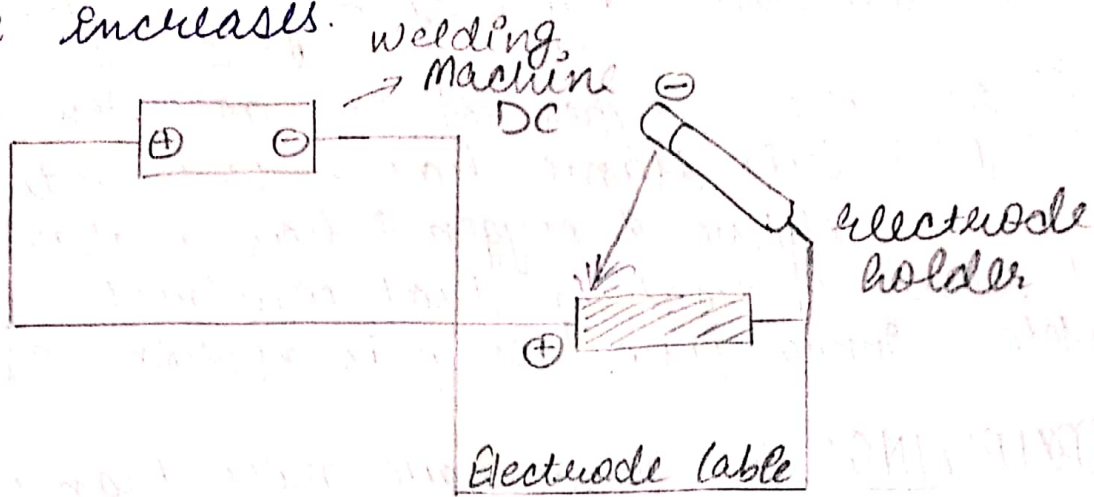 increases.
welding
Machine
DC
⊖
⊕ ⊖
electrode
holder
⊕
Electrode Cable